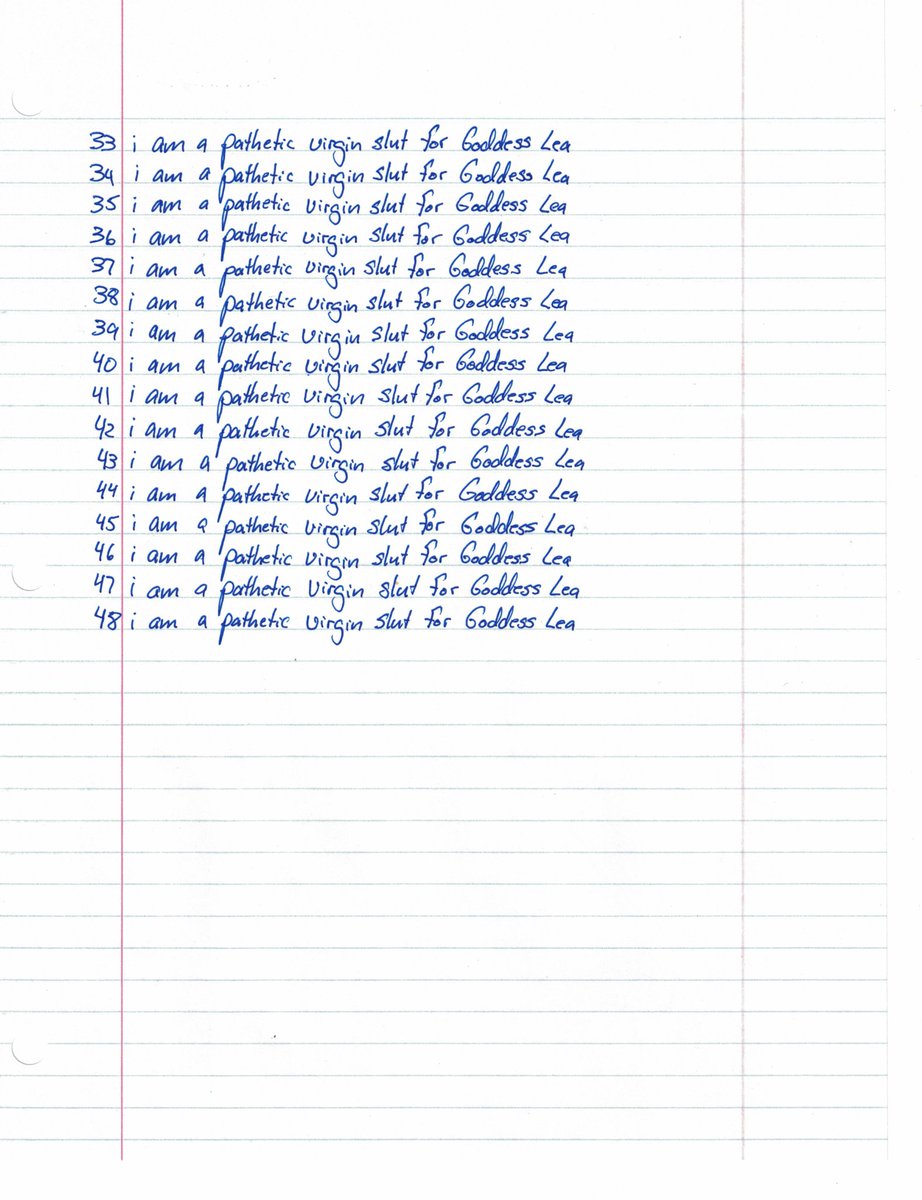 33 i am a pathetic virgin slut for Goddess Lea
34 i am a pathetic virgin slut for Goddess Lea
35 i am a pathetic virgin slut for Goddess Lea
36 i am a pathetic virgin slut for Goddess Lea
37 i am a pathetic virgin slut for Goddess Lea
38 i am a pathetic virgin slut for Goddess Lea
39 i am a pathetic virgin slut for Goddess Lea
40 i am a pathetic virgin slut for Goddess Lea
41 i am a pathetic virgin slut for Goddess Lea
42 i am a pathetic virgin slut for Goddess Lea
43 i am a pathetic virgin slut for Goddess Lea
44 i am a pathetic virgin slut for Goddess Lea
45 i am a pathetic virgin slut for Goddess Lea
46 i am a pathetic virgin slut for Goddess Lea
47 i am a pathetic virgin slut for Goddess Lea
48 i am a pathetic virgin slut for Goddess Lea